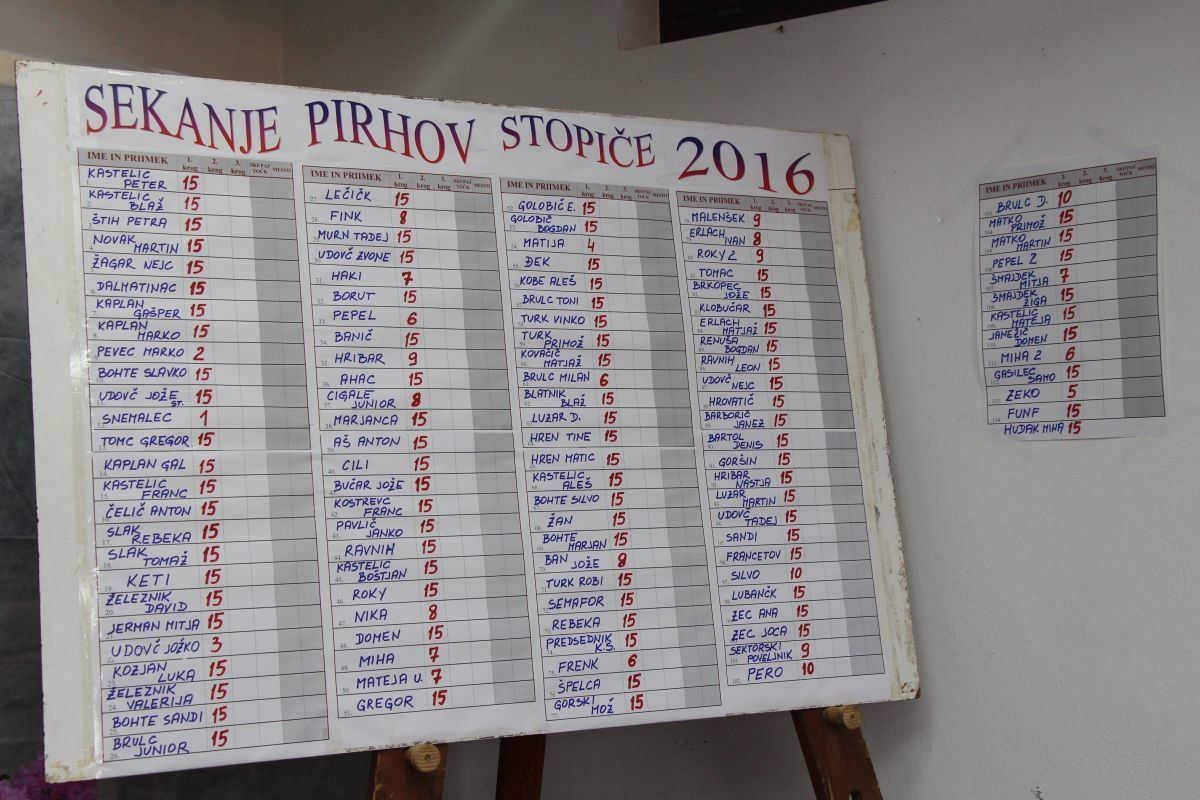 SEKANJE PIRHOV STOPIČE 2016
IME IN PRIIMEK 1. krog 2. krog 3. krog SKUPAJ TOČK MESTO
1. KASTELIC PETER 15
2. KASTELIC BLAŽ 15
3. ŠTIH PETRA 15
4. NOVAK MARTIN 15
5. ŽAGAR NEJC 15
6. DALMATINAC 15
7. KAPLAN GAŠPER 15
8. KAPLAN MARKO 15
9. PEVEC MARKO 2
10. BOHTE SLAVKO 15
11. UDOVČ JOŽE ST. 15
12. SNEMALEC 1
13. TOMC GREGOR 15
14. KAPLAN GAL 15
15. KASTELIC FRANC 15
16. ČELIČ ANTON 15
17. SLAK REBEKA 15
18. SLAK TOMAŽ 15
19. KETI 15
20. ŽELEZNIK DAVID 15
21. JERMAN MITJA 15
22. UDOVČ JOŽKO 3
23. KOZJAN LUKA 15
24. ŽELEZNIK VALERIJA 15
25. BOHTE SANDI 15
26. BRULC JUNIOR 15
IME IN PRIIMEK 1. krog 2. krog 3. krog SKUPAJ TOČK MESTO
27. LEČIČK 15
28. FINK 8
29. MURN TADEJ 15
30. UDOVČ ZVONE 15
31. HAKI 7
32. BORUT 15
33. PEPEL 6
34. BANIČ 15
35. HRIBAR 9
36. AHAC 15
37. CIGALE JUNIOR 8
38. MARJANCA 15
39. AŠ ANTON 15
40. CILI 15
41. BUČAR JOŽE 15
42. KOSTREVC FRANC 15
43. PAVLIČ JANKO 15
44. RAVNIH 15
45. KASTELIC BOŠTJAN 15
46. ROKY 15
47. NIKA 8
48. DOMEN 15
49. MIHA 7
50. MATEJA U. 7
51. GREGOR 15
IME IN PRIIMEK 1. krog 2. krog 3. krog SKUPAJ TOČK MESTO
52. GOLOBIČ E. 15
53. GOLOBIČ BOGDAN 15
54. MATIJA 4
55. DEK 15
56. KOBE ALEŠ 15
57. BRULC TONI 15
58. TURK VINKO 15
59. TURK PRIMOŽ 15
60. KOVAČIČ MATJAŽ 15
61. BRULC MILAN 6
62. BLATNIK BLAŽ 15
63. LUZAR D. 15
64. HREN TINE 15
65. HREN MATIC 15
66. KASTELIC ALEŠ 15
67. BOHTE SILVO 15
68. ŽAN 15
69. BOHTE MARJAN 15
70. BAN JOŽE 8
71. TURK ROBI 15
72. SEMAFOR 15
73. REBEKA 15
74. PREDSEDNIK K.S. 15
75. FRENK 6
76. ŠPELCA 15
77. GORSKI MOŽ 15
IME IN PRIIMEK 1. krog 2. krog 3. krog SKUPAJ TOČK MESTO
78. MALENŠEK 9
79. ERLACH IVAN 8
80. ROKY 2 9
81. TOMAC 15
82. BRKOPEC JOŽE 15
83. KLOBUČAR 15
84. ERLAH MATJAŽ 15
85. RENUŠA BOGDAN 15
86. RAVNIH LEON 15
87. UDOVČ NEJC 15
88. HROVATIČ 15
89. BARBORIČ JANEZ 15
90. BARTOL DENIS 15
91. GORŠIN 15
92. HRIBAR NASTJA 15
93. LUZAR MARTIN 15
94. UDOVČ TADEJ 15
95. SANDI 15
96. FRANCETOV 15
97. SILVO 10
98. LUBANČK 15
99. ZEC ANA 15
100. ZEC JOCA 15
101. SEKTORSKI POVELJNIK 9
102. PERO 10
IME IN PRIIMEK 1. krog 2. krog 3. krog SKUPAJ TOČK MESTO
103. BRULC D. 10
104. MATKO PRIMOŽ 15
105. MATKO MARTIN 15
106. PEPEL 2 15
107. ŠMAJDEK MITJA 7
108. ŠMAJDEK ŽIGA 15
109. KASTELIC MATEJA 15
110. JANEŽIČ DOMEN 15
111. MIHA 2 6
112. GASILEC SAMO 15
113. ZEKO 5
114. FUNF 15
HUDAK MIHA 15